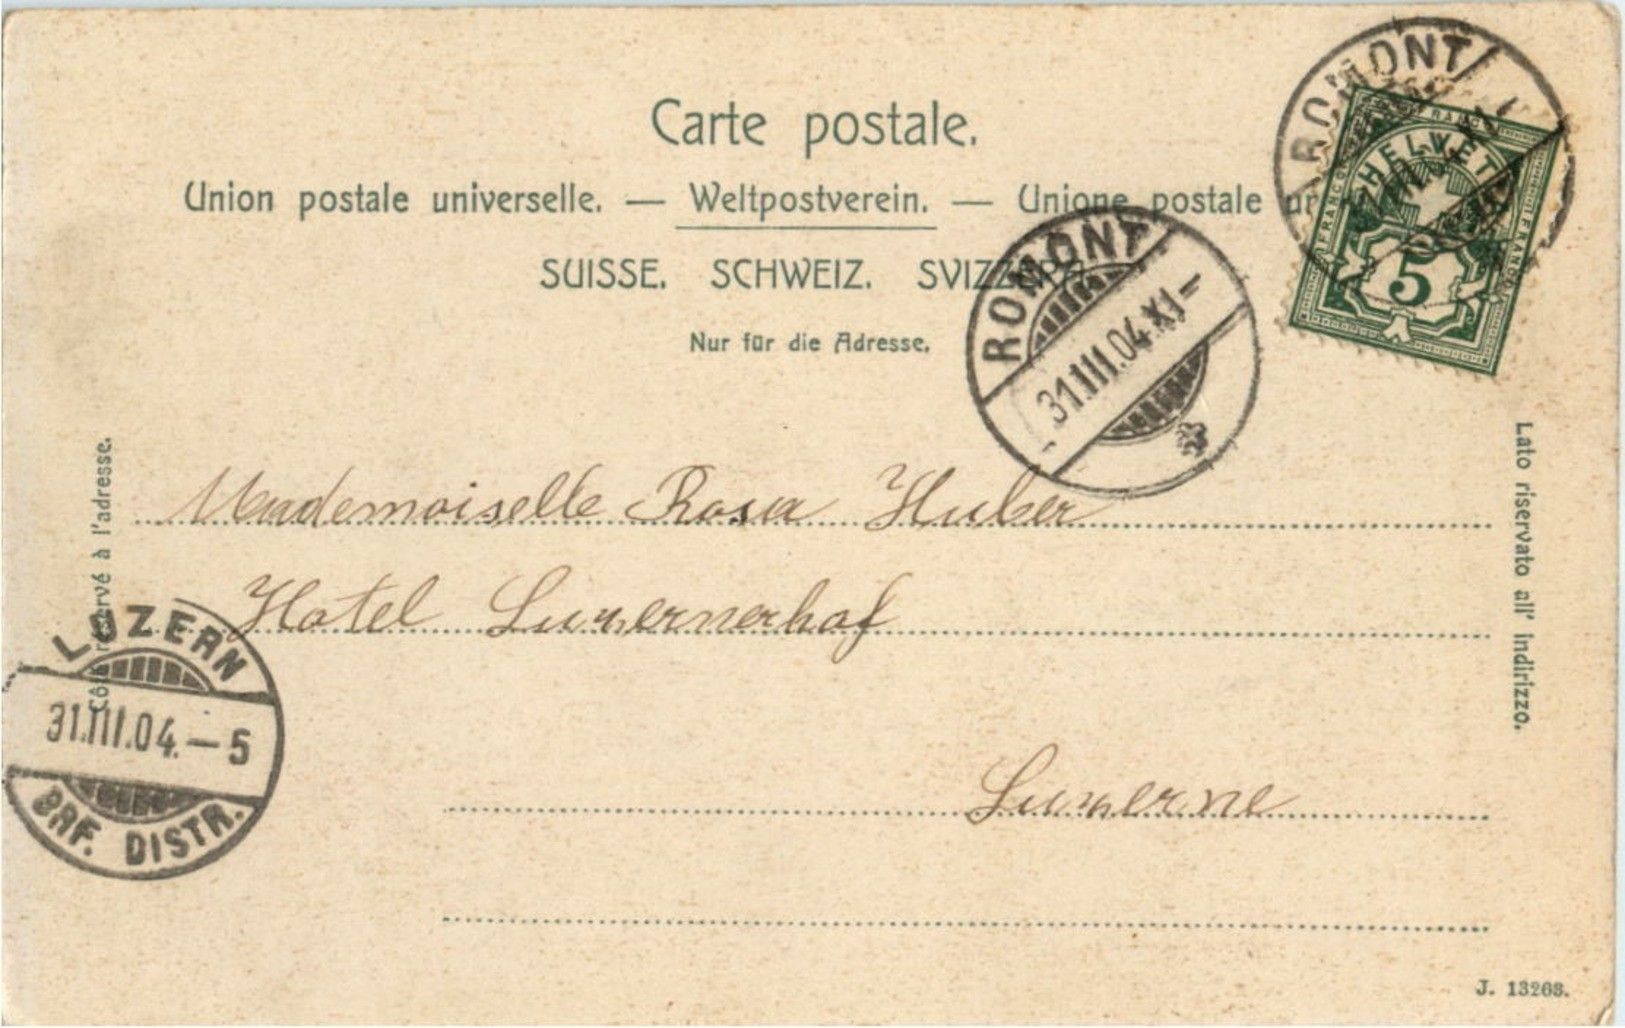 Carte postale.
Union postale universelle. — Weltpostverein. — Unione postale
SUISSE. SCHWEIZ. SVIZZERA
Nur für die Adresse.
ROMONT
FRANCO HELVETIA FRANCO
5
ROMONT
31.III.04.XI–
Côté réservé à l'adresse.
Mademoiselle Rosa Huber
Hotel Luzernerhof
Luzerne
Lato riservato all' indirizzo.
LUZERN
31.III.04.–5
BRF. DISTR.
J. 13268.